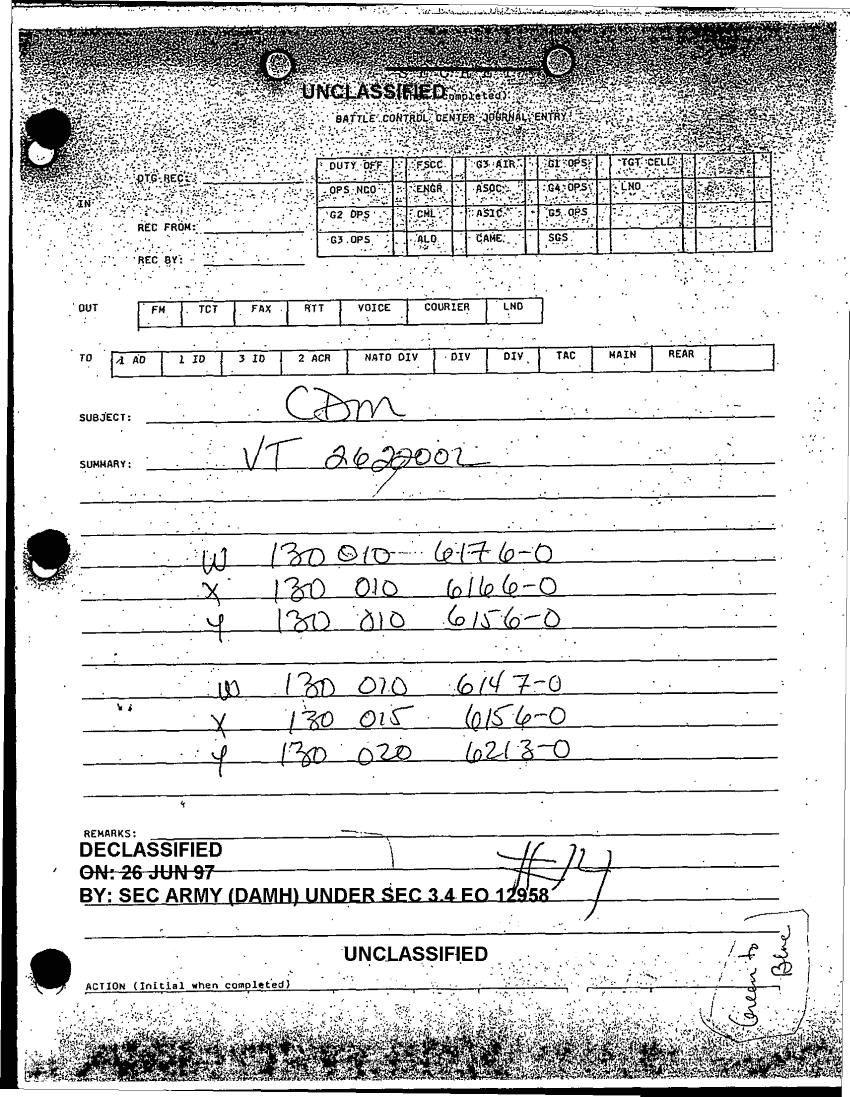 UNCLASSIFIED ompleted)
BATTLE CONTROL CENTER JOURNAL ENTRY
DUTY OFF FSCC G3 AIR G1 OPS TGT CELL
DTG REC:
OPS NCO ENGR ASOC G4 OPS LNO
IN
G2 OPS CML ASIC G5 OPS
REC FROM:
G3 OPS ALO CAME SGS
REC BY:
OUT FM TCT FAX RTT VOICE COURIER LNO
TO 1 AD 1 ID 3 ID 2 ACR NATO DIV DIV DIV TAC MAIN REAR
SUBJECT: CDM
SUMMARY: VT 262200Z
W 130 010 6176-0
X 130 010 6166-0
Y 130 010 6156-0
W 130 010 6147-0
X 130 015 6156-0
Y 130 020 6213-0
REMARKS:
DECLASSIFIED
ON: 26 JUN 97
#14
BY: SEC ARMY (DAMH) UNDER SEC 3.4 EO 12958
UNCLASSIFIED
Green to
Blue
ACTION (Initial when completed)